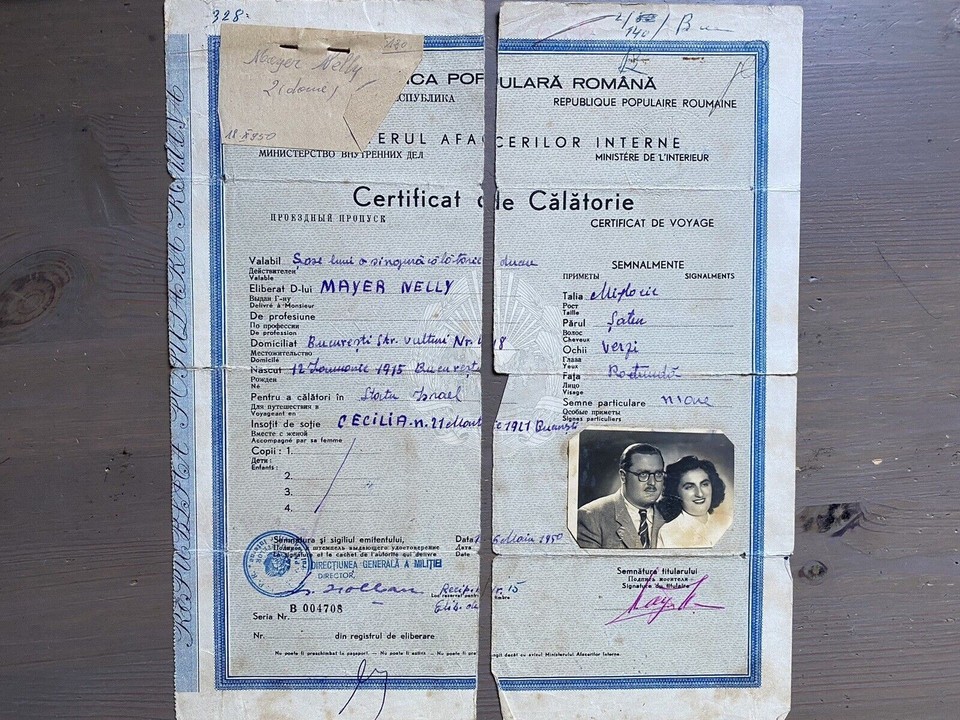 328
140
Mayer Nelly
140
2 (dome)
18 X 950
ICA POPULARĂ ROMÂNĂ
ЕСПУБЛИКА
REPUBLIQUE POPULAIRE ROUMAINE
TERUL AFACERILOR INTERNE
МИНИСТЕРСТВО ВНУТРЕННИХ ДЕЛ
MINISTÈRE DE L'INTERIEUR
Certificat de Călătorie
ПРОЕЗДНЫЙ ПРОПУСК
CERTIFICAT DE VOYAGE
Valabil Șase luni o singură călătorie
Действителен
Valable
Eliberat D-lui MAYER NELLY
Выдан Г-ну
Delivré à Monsieur
De profesiune
По профессии
De profession
Domiciliat București Str. Vulturi Nr.
Местожительство
Domicilé
Născut 12 Ianuarie 1915 București
Рожден
Né
Pentru a călători în Statu Israel
Для путешествия в
Voyageant en
Însoțit de soție CECILIA n. 21 1921 București
Вместе с женой
Accompagné par sa femme
Copii: 1.
Дети:
Enfants:
2.
3.
4.
SEMNALMENTE
ПРИМЕТЫ SIGNALMENTS
Talia Mijlocie
Рост
Taille
Părul Șaten
Волос
Cheveux
Ochii Verzi
Глаза
Yeux
Fața Rotundă
Лицо
Visage
Semne particulare
Особые приметы
Signes particuliers
Semnătura și sigiliul emitentului, Data 1950
Подпись и штемпель выдающего удостоверение Дата
La signature et le cachet de l'autorité qui delivre Date
DIRECȚIUNEA GENERALĂ A MILIȚIEI
DIRECTOR,
Nr. 15
B 004708
Seria Nr.
Nr. din registrul de eliberare
Semnătura titularului
Подпись носителя
Signature du titulaire
Nu poate fi preschimbat la pașaport. — Nu poate fi extins — Nu poate fi prelungit decât cu avizul Ministerului Afacerilor Interne.
REPUBLICA POPULARA ROMANA